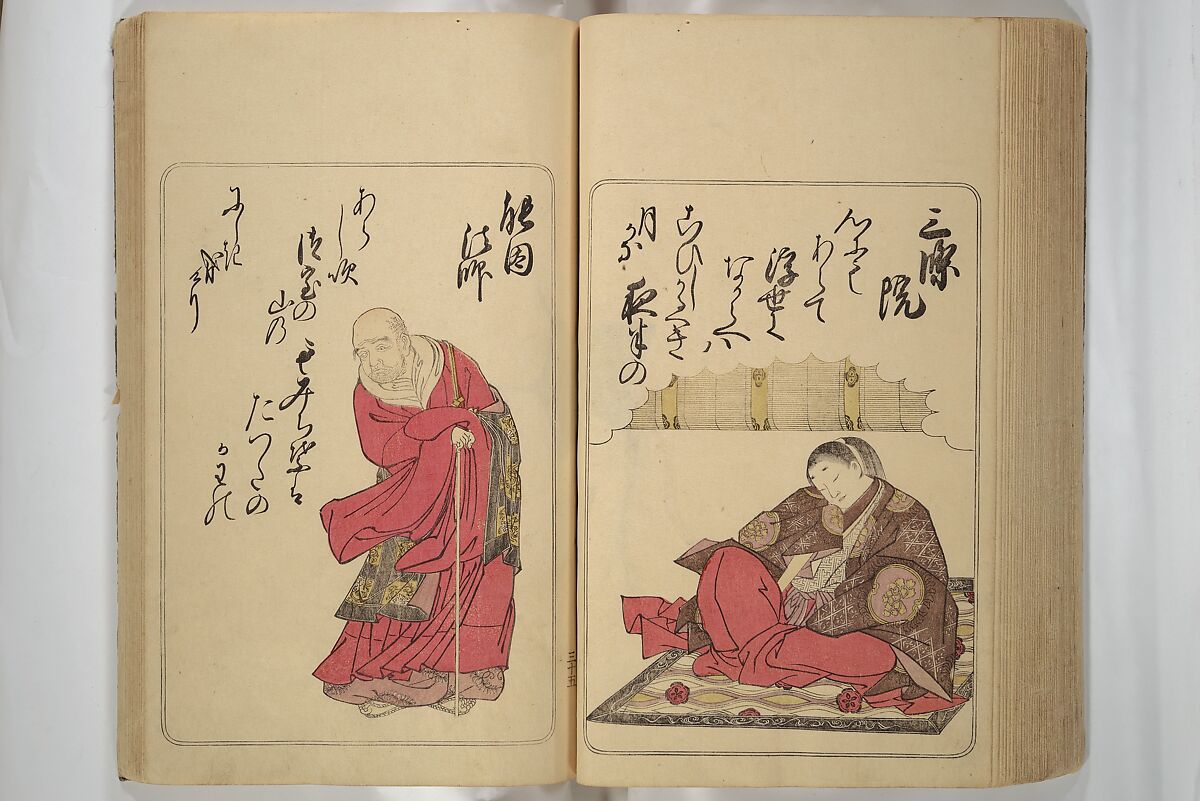 三條
院
心にも
あらて
浮世に
なからへハ
こひしかるへき
夜半の
月かな
能因
法師
あらし吹
御室の
山乃
もみち葉は
たつたの
かわの
にしき
なり
けり
三十五